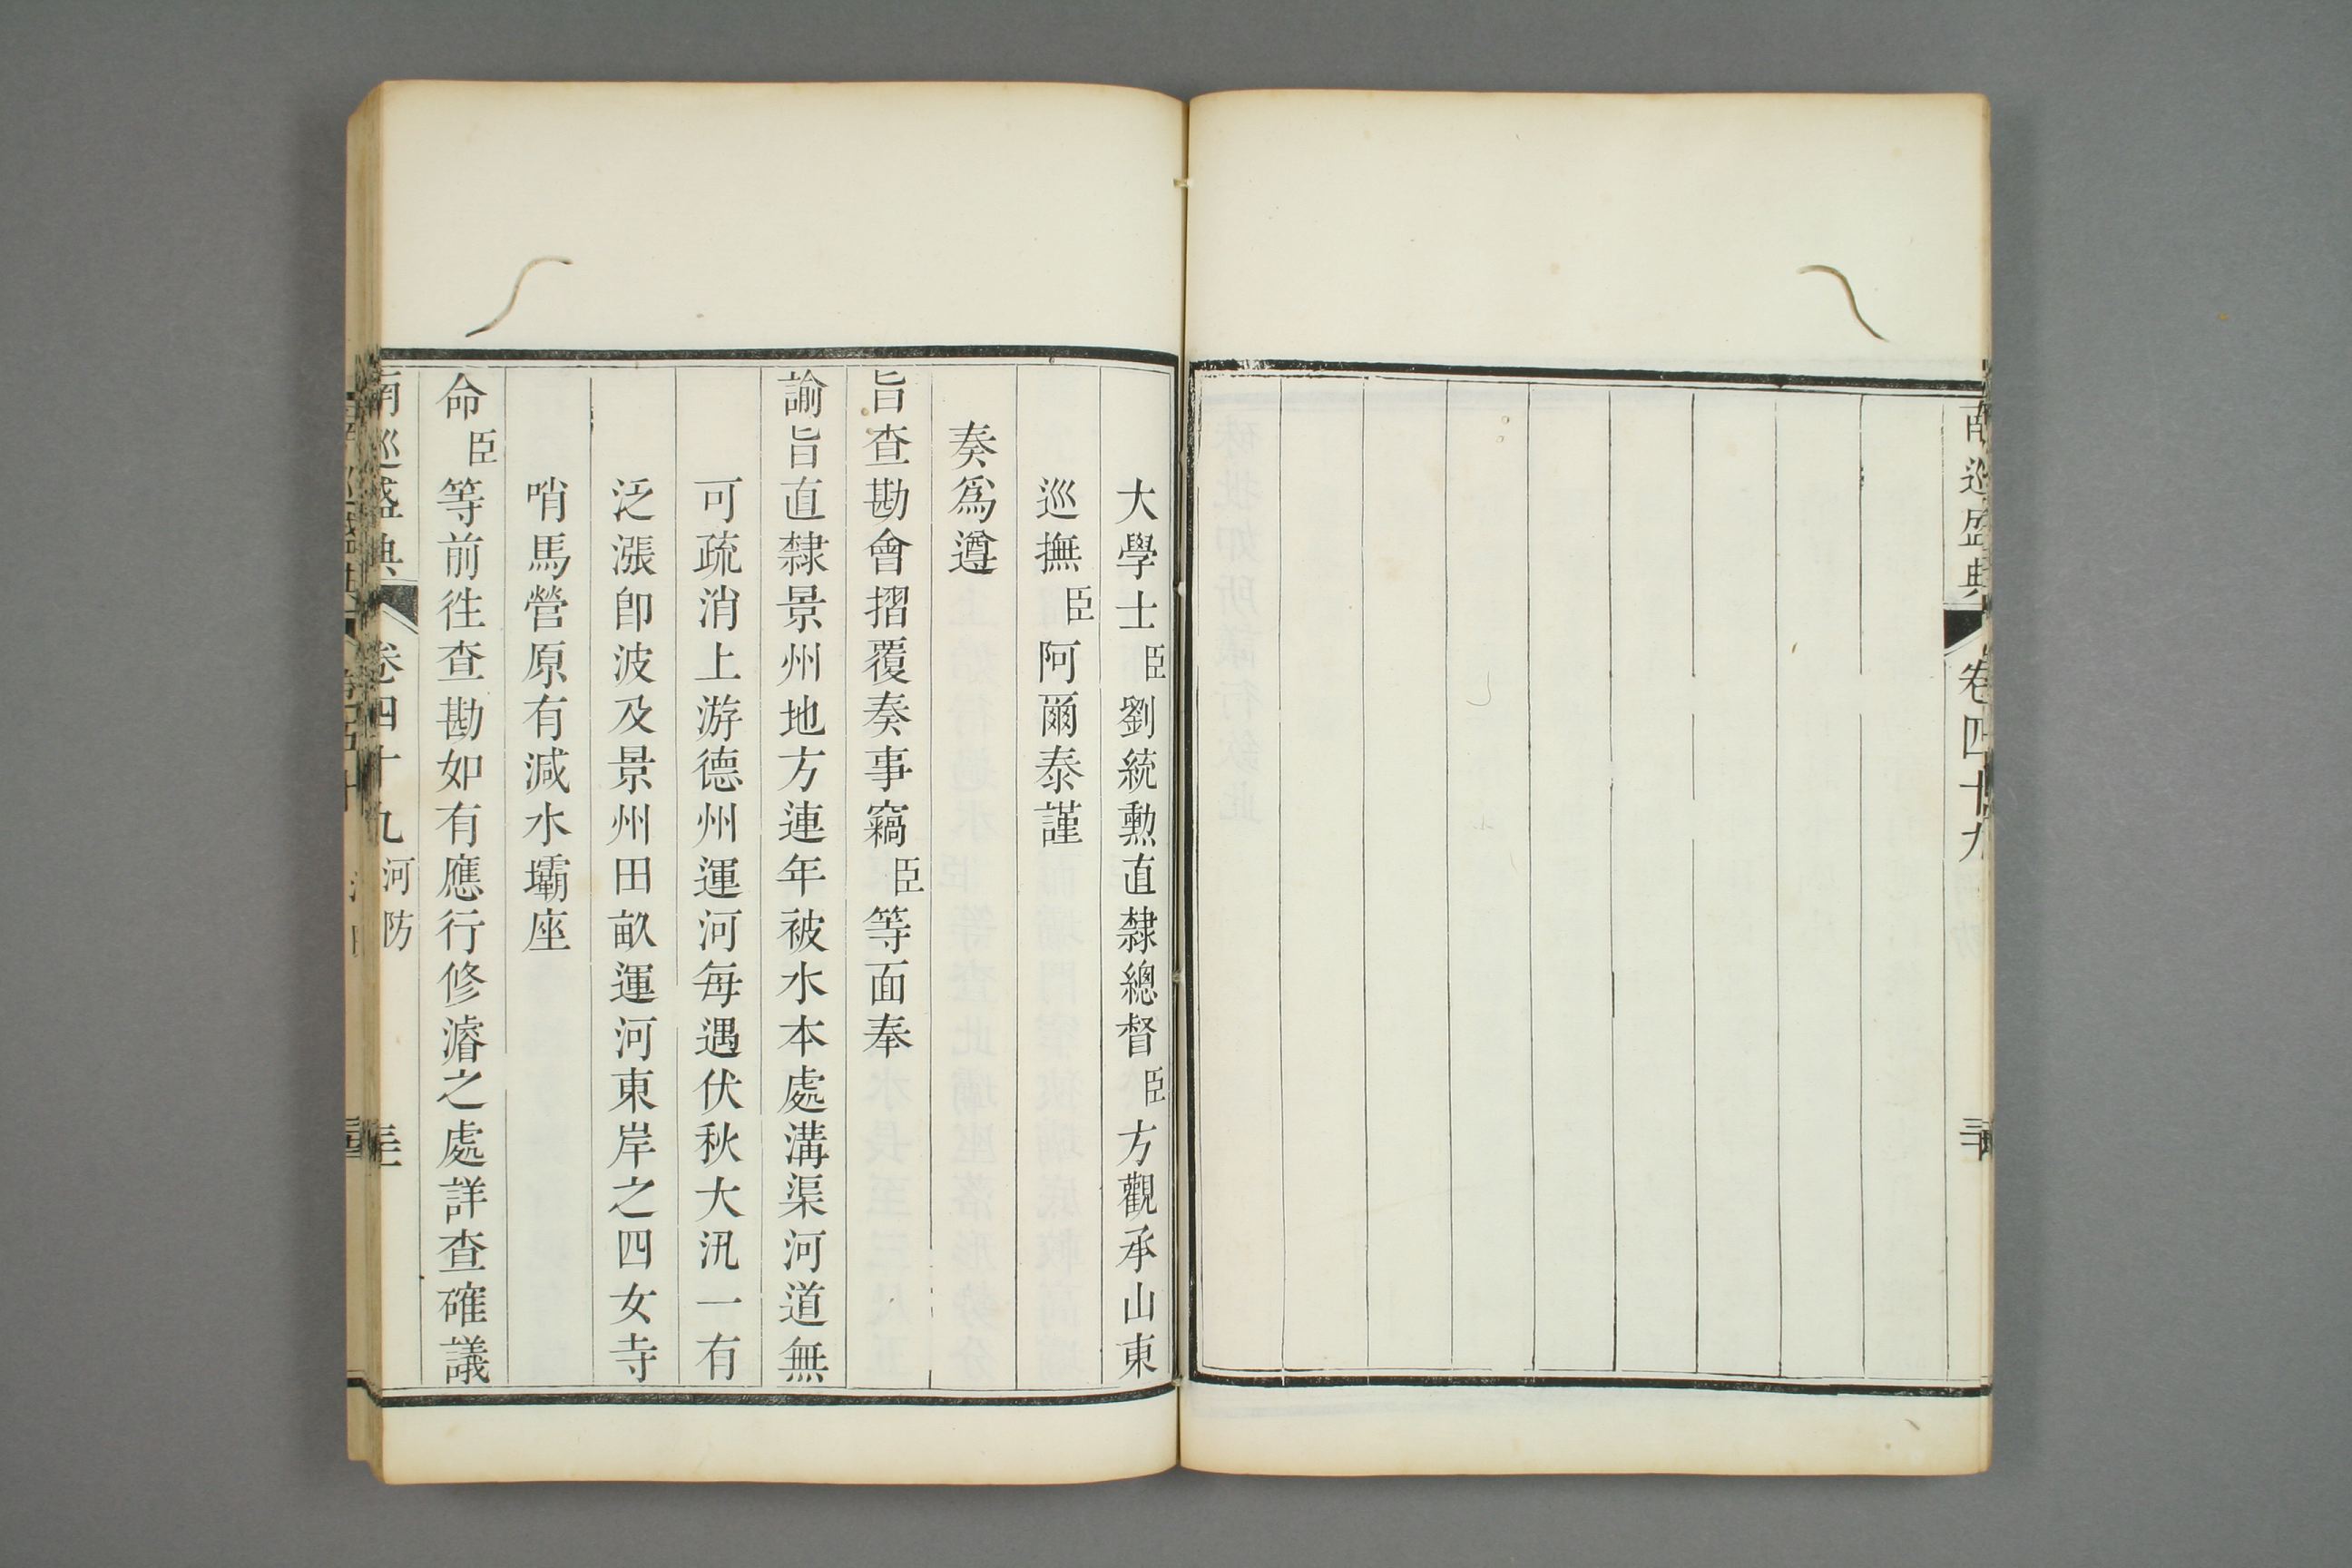 南巡盛典 卷四十九
大學士臣劉統勲直隸總督臣方觀承山東
巡撫臣阿爾泰謹
奏爲遵
旨查勘會摺覆奏事竊臣等面奉
諭旨直隸景州地方連年被水本處溝渠河道無
可疏消上游德州運河每遇伏秋大汛一有
泛漲卽波及景州田畝運河東岸之四女寺
哨馬營原有減水壩座
命臣等前往查勘如有應行修濬之處詳查確議
南巡盛典 卷四十九 河防